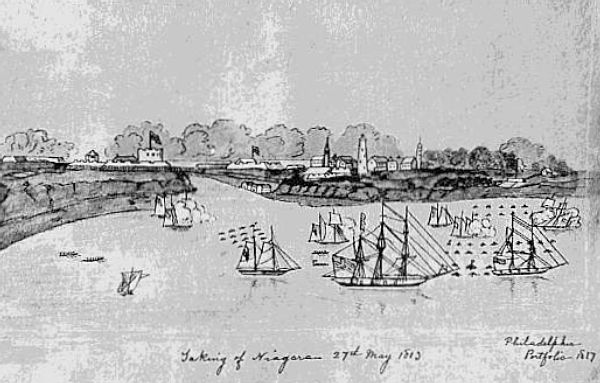 Taking of Niagara 27th May 1813
Philadelphia
Portfolio 1817